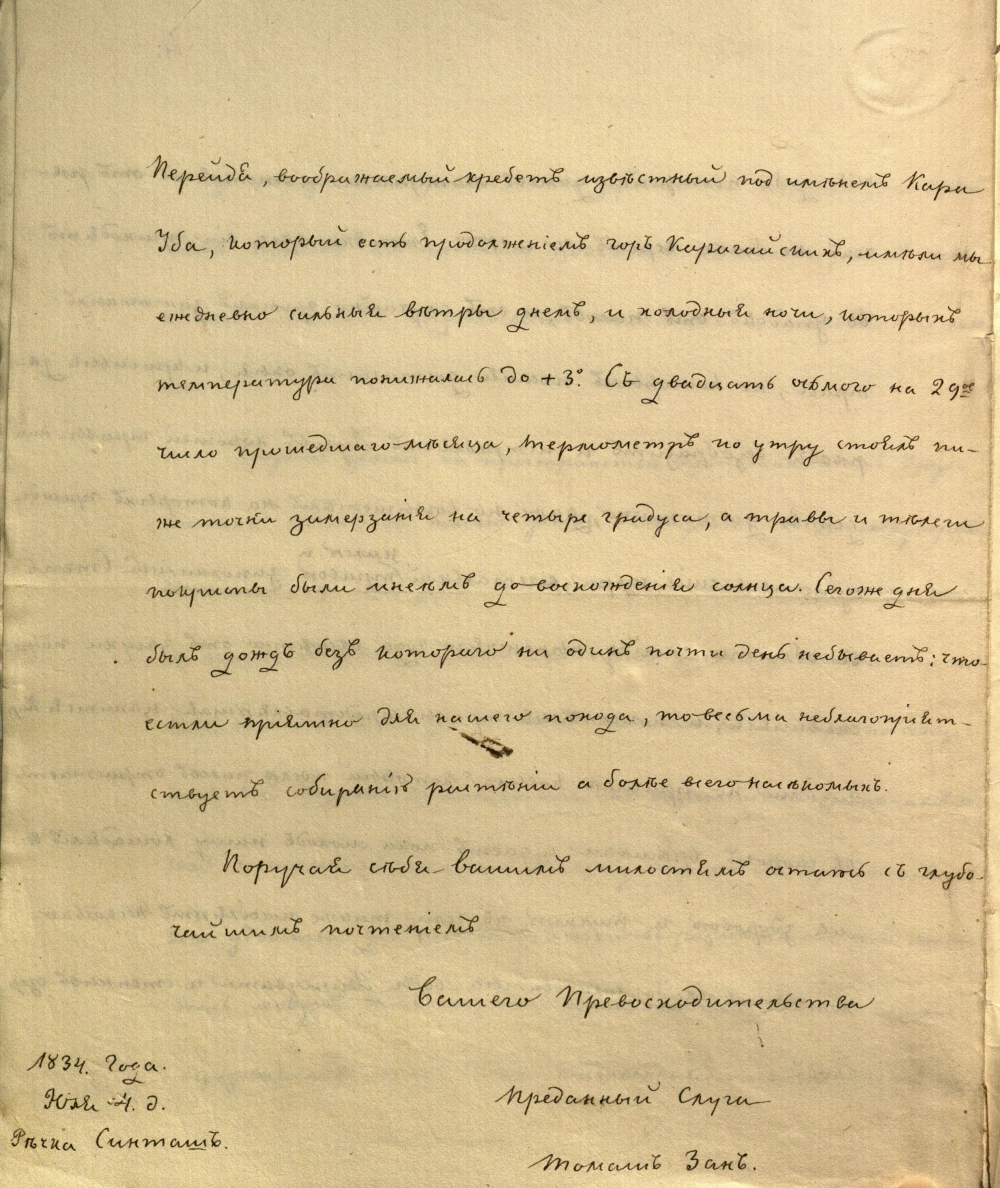 Перейдя, воображаемый хребетъ извѣстный под имѣнемъ Кара
Уба, который есть продолженіемъ горъ Карагайскихъ, имѣли мы
ежедневно сильныя вѣтры днемъ, и холодныя ночи, которыхъ
температура понижалась до +3°. Съ двадцать осьмого на 29ое
число прошедшаго мѣсяца, термометръ по утру стоялъ ни-
же точки замерзанія на четыре градуса, а травы и тѣлеги
покрыты были инеемъ до восхожденія солнца. Сегоже дня
былъ дождь безъ котораго ни одинъ почти день небываетъ: что
естли пріятно для нашего похода, то весьма неблагопріят-
ствуетъ собиранію растѣніи а болѣе всего насѣкомыхъ.
Поручая сѣбя вашимъ милостямъ остаюсь съ глубо-
чайшимъ почтеніемъ
Вашего Превосходительства
1834. Года.
Юля 4. д.
Рѣчка Синташъ.
Преданный Слуга
Томашъ Занъ.